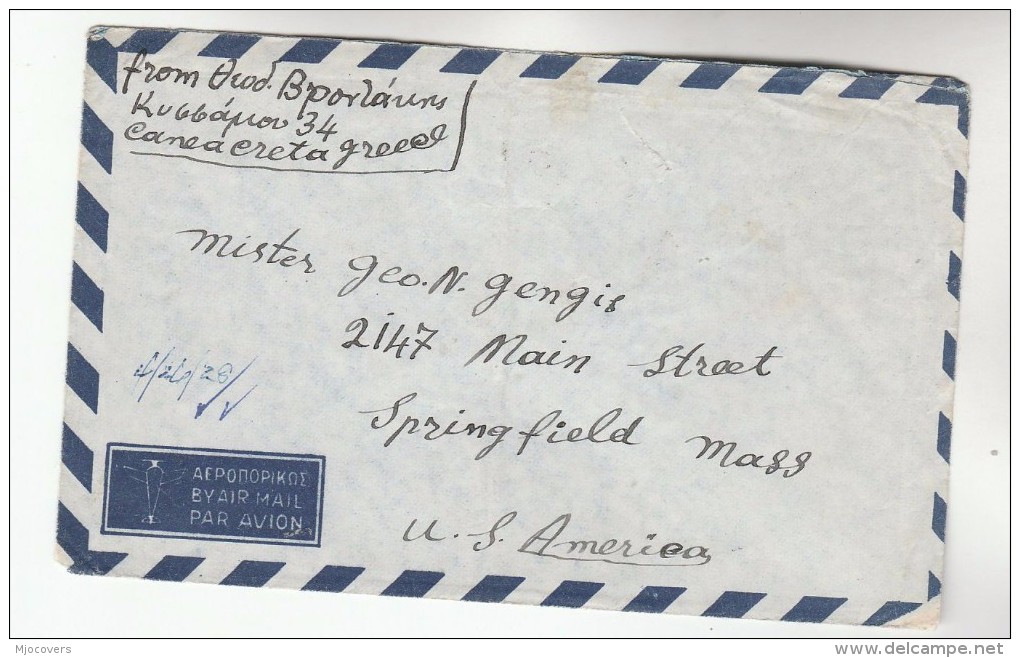 from Θεοδ. Βροντάκης
Κυσσάμου 34
Canea creta greece
Mister Geo. N. Gengis
2147 Main Street
Springfield Mass
U. S. America
ΑΕΡΟΠΟΡΙΚΩΣ
BY AIR MAIL
PAR AVION
Mjocovers
delcampe.net